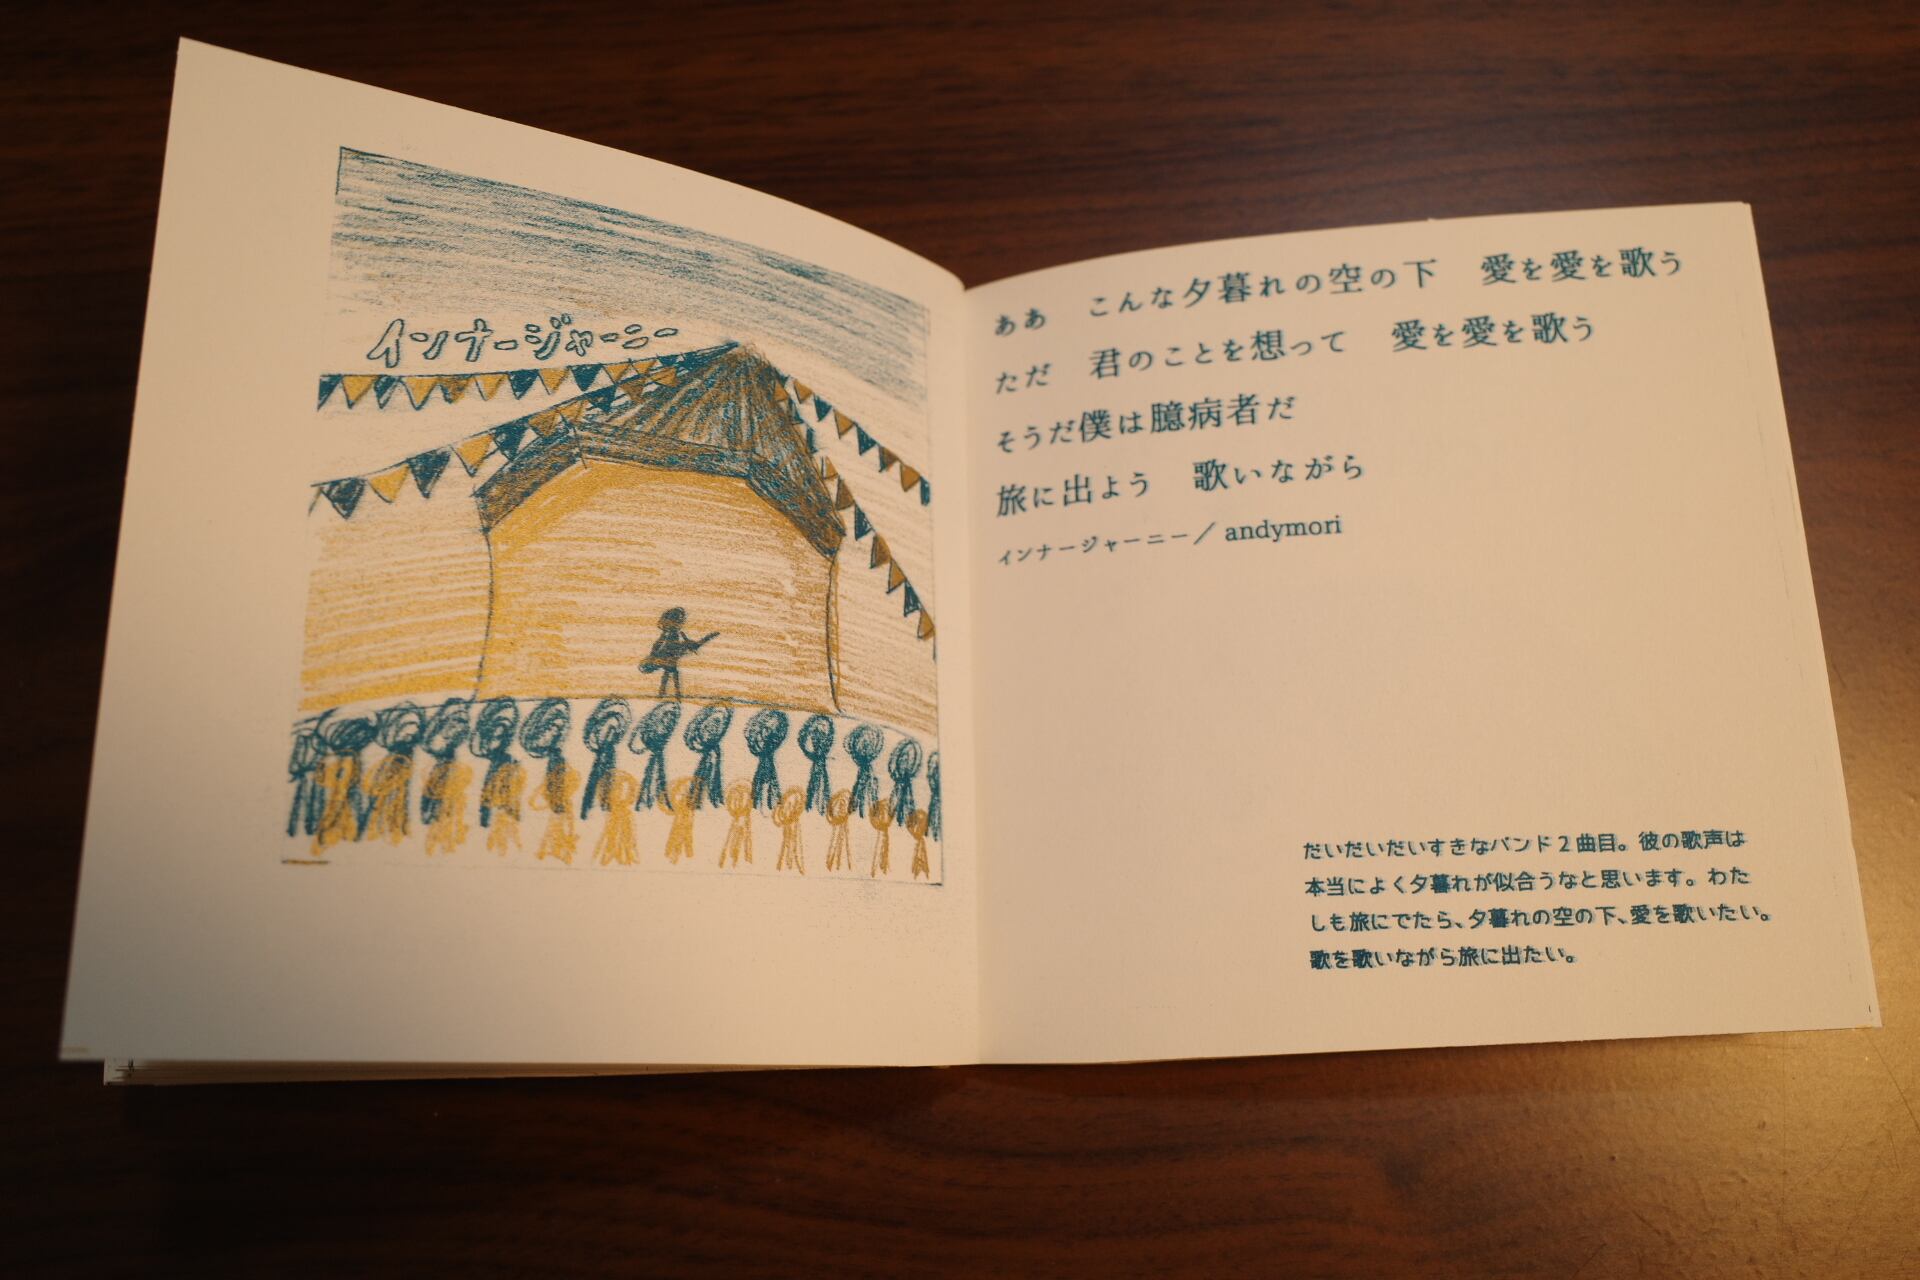 インナージャーニー
ああ　こんな夕暮れの空の下　愛を愛を歌う
ただ　君のことを想って　愛を愛を歌う
そうだ僕は臆病者だ
旅に出よう　歌いながら
インナージャーニー／andymori
だいだいだいすきなバンド2曲目。彼の歌声は
本当によく夕暮れが似合うなと思います。わた
しも旅にでたら、夕暮れの空の下、愛を歌いたい。
歌を歌いながら旅に出たい。